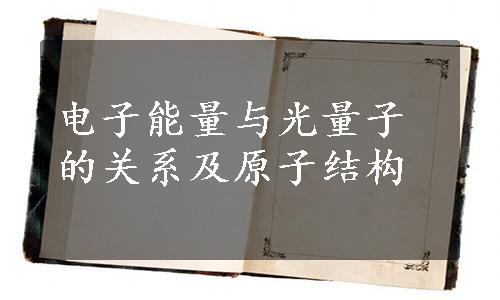 电子能量与光量子
的关系及原子结构